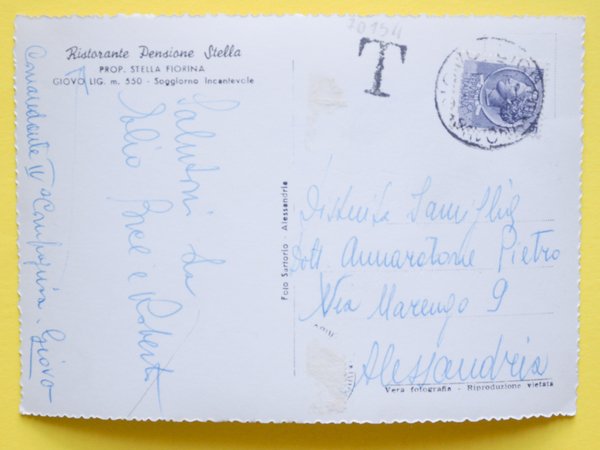 70154
T
Ristorante Pensione Stella
PROP. STELLA FIORINA
GIOVO LIG. m. 550 - Soggiorno Incantevole
Saluti da
e Roberto
Comandante Compagnia Giovo
Foto Sartorio - Alessandria
Distinta Famiglia
Dott. Annaratone Pietro
Via Marengo 9
Alessandria
Vera fotografia - Riproduzione vietata